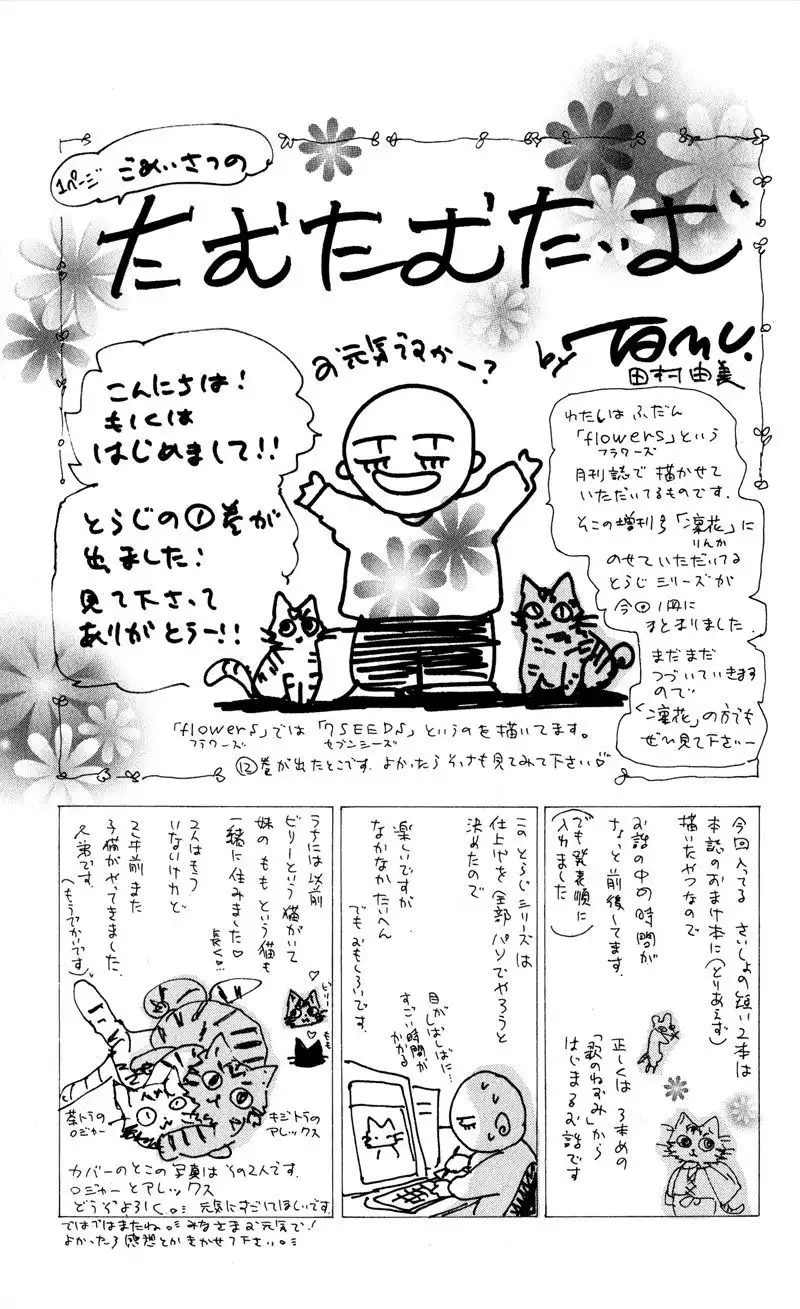 1ページ ごあいさつの
たむたむたいむ
by Tamu.
田村由美
お元気ですかー?
こんにちは!
もしくは
はじめまして!!
とらじの①巻が
出ました!
見て下さって
ありがとうー!!
わたしは ふだん
「flowers」という
フラワーズ
月刊誌で 描かせて
いただいてるものです.
そこの増刊号「凛花」に
りんか
のせていただいてる
とらじ シリーズが
今回 1冊に
まとまりました.
まだまだ
つづいていきます
ので
「凛花」の方でも
ぜひ見て下さいー
「flowers」では「7SEEDS」というのを描いてます。
フラワーズ
セブンシーズ
⑫巻が出たとこです. よかったら そっちも見てみて下さい♡
今回入ってる さいしょの短い2本は
本誌のおまけ本に(とりあえず)
描いたやつなので
お話の中の時間が
ちょっと前後してます.
(でも発表順に
入れました)
正しくは 3本めの
「歌のねずみ」から
はじまるお話です
この とらじシリーズは
仕上げを 全部 パソでやろうと
決めたので
楽しいですが
なかなか たいへん
でも おもしろいです.
目がしばしばに…
すごい時間が
かかる
うちには 以前
ビリーという 猫がいて
妹の もも という 猫も
一緒に 住みました♡
長く…
2人はもう
いないけれど
2年前 また
子猫がやってきました.
兄弟です.
(もうでかいです)
ビリー
♡
もも
茶トラの
ロジャー
キジトラの
アレックス
カバーのとこの写真は その2人です.
ロジャーとアレックス
どうぞよろしく。 元気にすごしてほしいです.
ではではまたね。 みなさまお元気で!
よかったら 感想とか きかせて下さい。